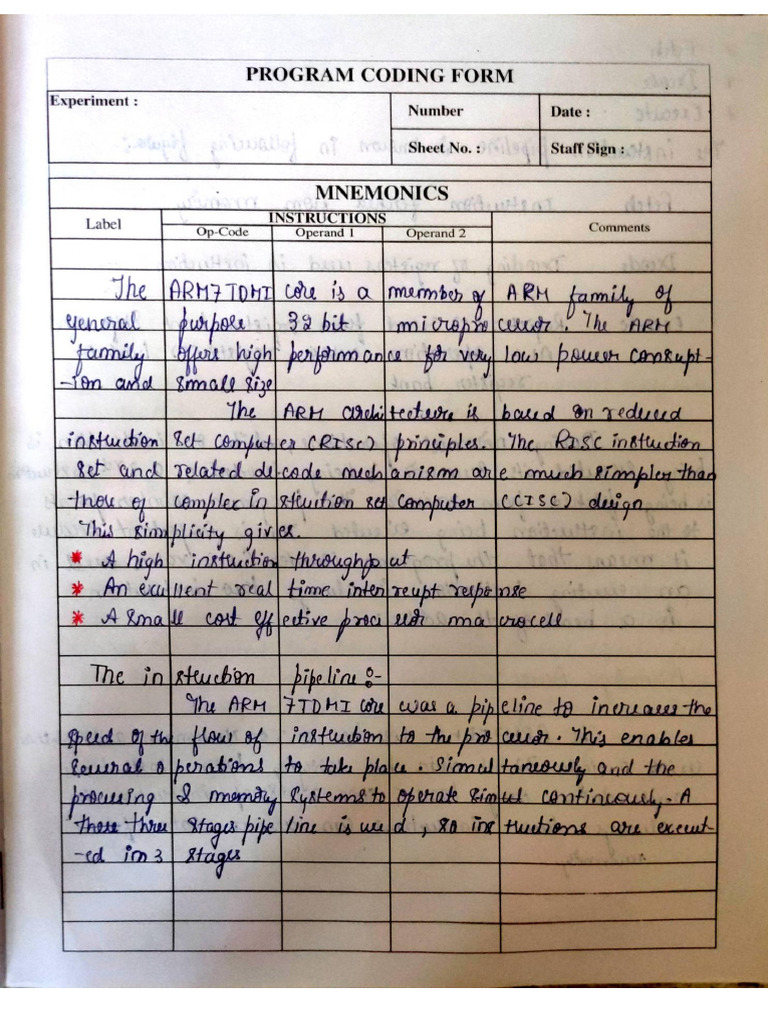 PROGRAM CODING FORM
Experiment :
Number
Date :
Sheet No. :
Staff Sign :
MNEMONICS
Label
INSTRUCTIONS
Op-Code
Operand 1
Operand 2
Comments
The ARM7TDMI core is a member of ARM family of
general purpose 32 bit microprocessor. The ARM
family offers high performance for very low power consupt-
-ion and small size
The ARM architecture is based on reduced
instruction set computer (RISC) principles. The RISC instruction
set and related decode mechanism are much simpler than
those of complec instruition set computer (CISC) design
This simplicity gives.
* A high instruction throughput
* An excellent real time interrupt response
* A small cost effective processor macrocell
The instruction pipeline :-
The ARM 7TDMI core was a pipeline to increases the
speed of the flow of instruction to the processor. This enables
several operations to take place. Simultaneously and the
processing & memory systems to operate simul continously. A
those three stages pipeline is used, so instructions are execut-
-ed in 3 stages